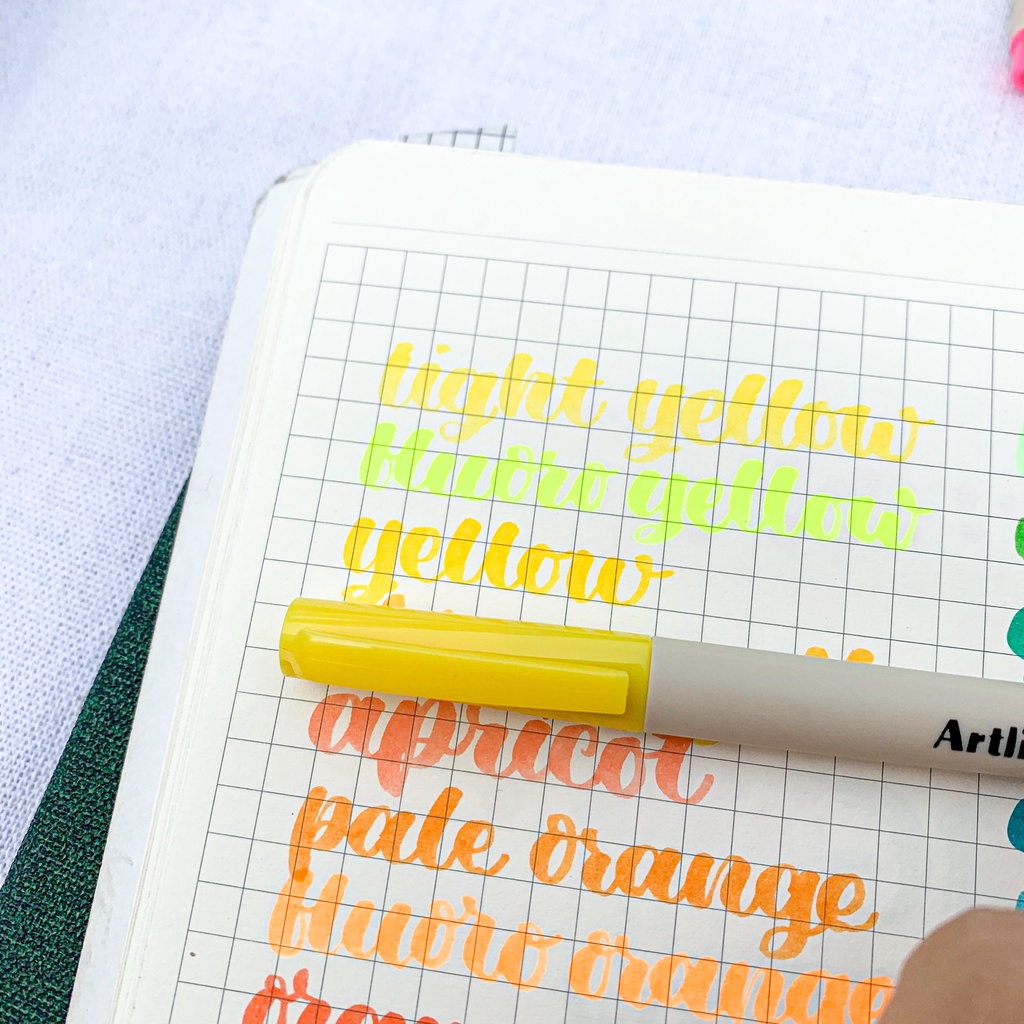 light yellow
fluoro yellow
yellow
Artli
apricot
pale orange
fluoro orange